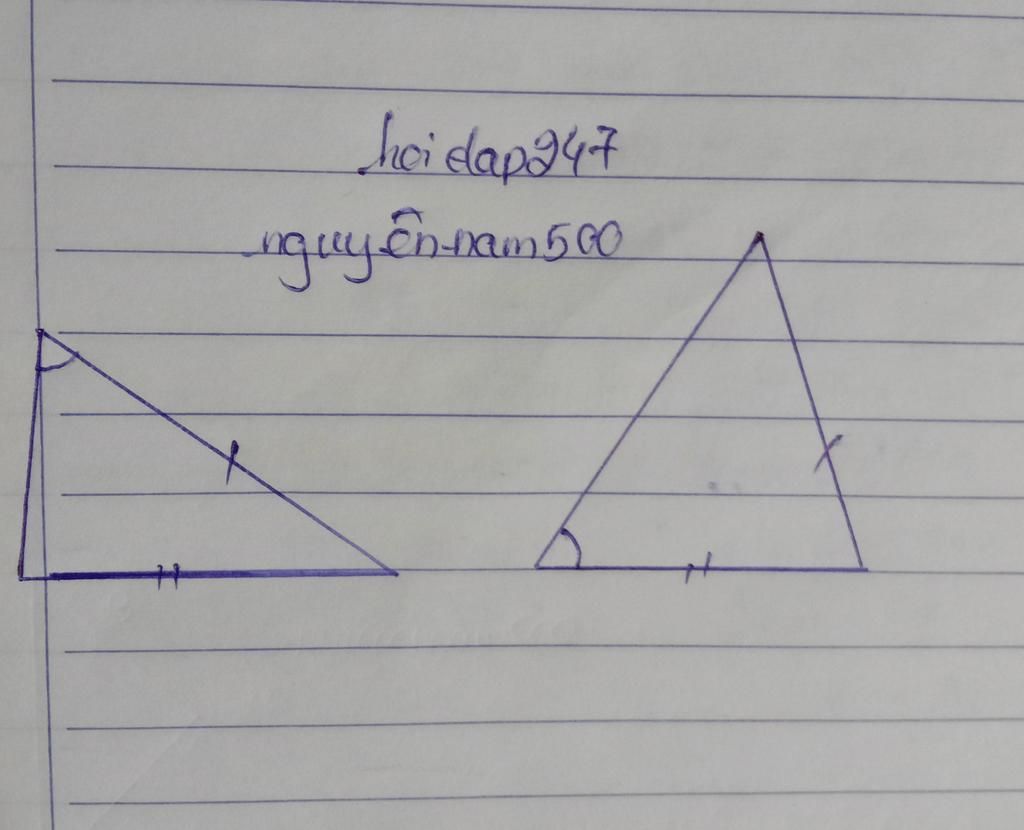 hoidap247
nguyên nam500